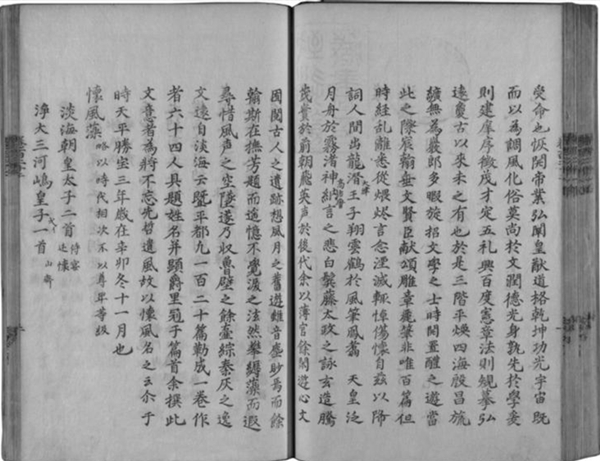 受命也恢開帝業弘闡皇猷道格乾坤功光宇宙既
而以為調風化俗莫尚於文潤德光身孰先於學爰
則建庠序徵茂才定五礼興百度憲章法則規摹弘
遠夐古以來未之有也於是三階平煥四海殷昌旒
纊無為巖廊多暇旋招文學之士時開置醴之遊當
此之際宸翰垂文賢臣献頌雕章麗筆非唯百篇但
時経乱離悉從煨燼言念湮滅輙悼傷懷自茲以降
詞人間出龍潛王子翔雲鶴於風筆鳳翥　天皇泛
月舟於霧渚神納言之悲白鬢藤太政之詠玄造騰
茂實於前朝飛英声於後代余以薄官餘閒遊心文
囿閲古人之遺跡想風月之舊遊雖音塵眇焉而餘
翰斯在撫芳題而遥憶不覺淚之泫然攀縟藻而遐
尋惜風声之空墜遂乃収魯壁之餘蠹綜秦灰之逸
文遠自淡海云曁平都凡一百二十篇勒成一卷作
者六十四人具題姓名并顕爵里冠于篇首余撰此
文意者為將不忘先哲遺風故以懷風名之云尒于
時天平勝宝三年歲在辛卯冬十一月也
懷風藻　略以時代相次不以尊卑等級
淡海朝皇太子二首　侍宴　述懷
淨大三河嶋皇子一首　山斎